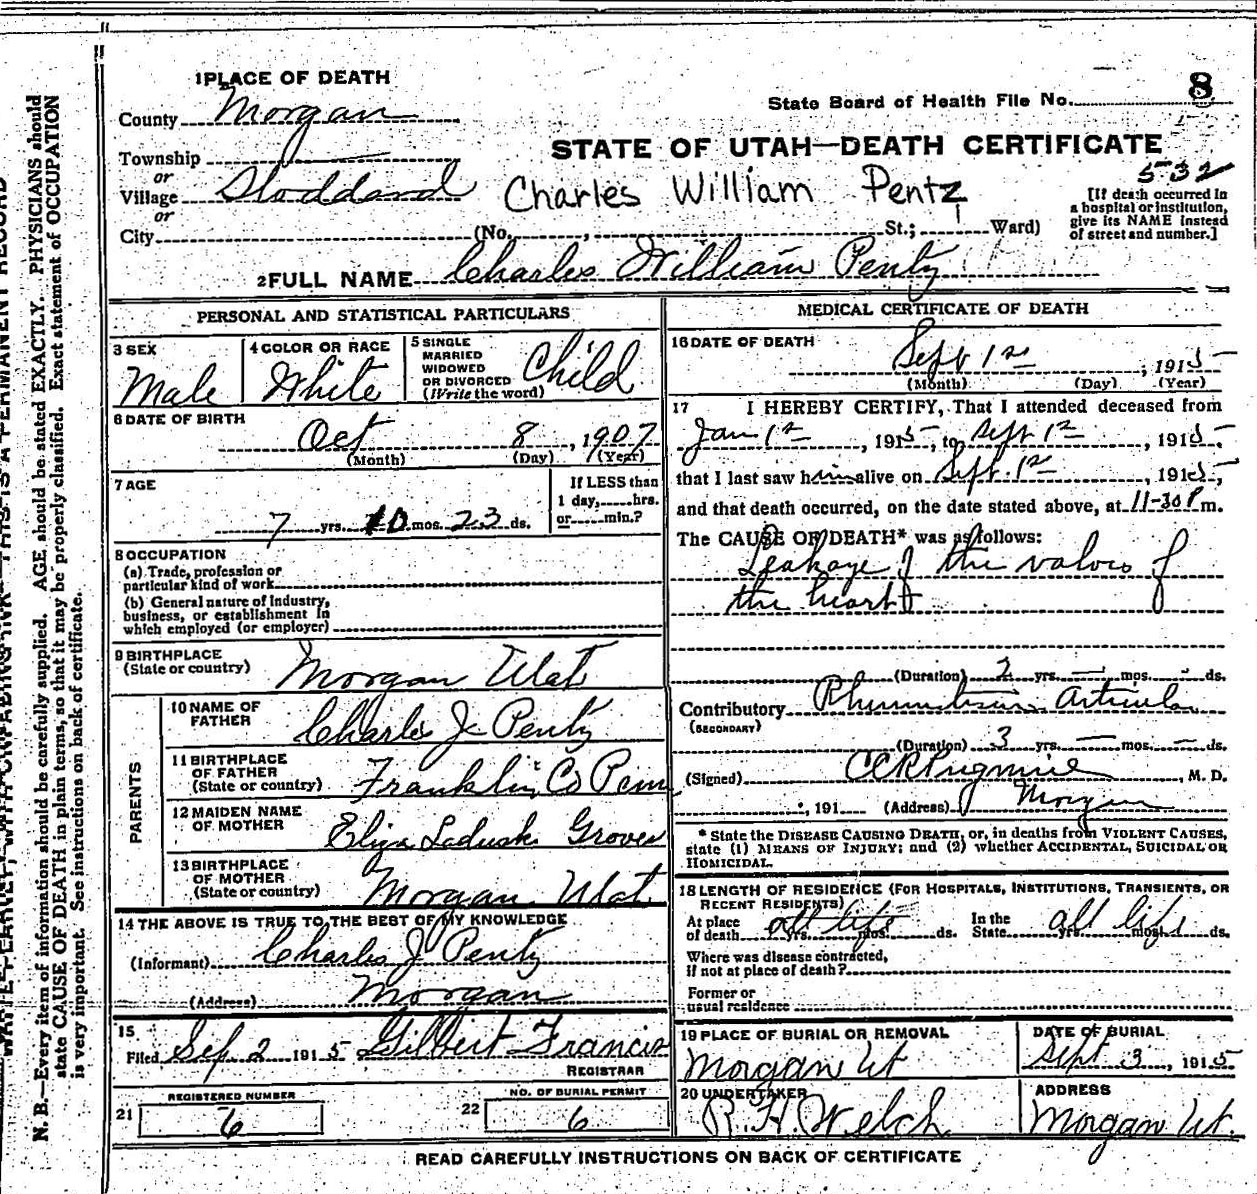 1 PLACE OF DEATH
County Morgan
Township
or
Village Stoddard
or
City (No. , St.; Ward)
State Board of Health File No. 8
STATE OF UTAH—DEATH CERTIFICATE
532
Charles William Pentz
[If death occurred in
a hospital or institution,
give its NAME instead
of street and number.]
2 FULL NAME Charles William Pentz
PERSONAL AND STATISTICAL PARTICULARS
3 SEX
Male
4 COLOR OR RACE
White
5 SINGLE
MARRIED
WIDOWED
OR DIVORCED
(Write the word)
Child
6 DATE OF BIRTH
Oct 8, 1907
(Month) (Day) (Year)
7 AGE
7 yrs. 10 mos. 23 ds.
If LESS than
1 day, hrs.
or min.?
8 OCCUPATION
(a) Trade, profession or
particular kind of work
(b) General nature of industry,
business, or establishment in
which employed (or employer)
9 BIRTHPLACE
(State or country)
Morgan Utah
PARENTS
10 NAME OF
FATHER
Charles J Pentz
11 BIRTHPLACE
OF FATHER
(State or country)
Franklin Co Penn
12 MAIDEN NAME
OF MOTHER
Eliza Grover
13 BIRTHPLACE
OF MOTHER
(State or country)
Morgan Utah
14 THE ABOVE IS TRUE TO THE BEST OF MY KNOWLEDGE
(Informant) Charles J Pentz
(Address) Morgan
15
Filed Sep 2 1915 Gilbert Francis
REGISTRAR
21 REGISTERED NUMBER
6
22 NO. OF BURIAL PERMIT
6
MEDICAL CERTIFICATE OF DEATH
16 DATE OF DEATH
Sept 1st, 1915
(Month) (Day) (Year)
17 I HEREBY CERTIFY, That I attended deceased from
Jan 1st, 1915, to Sept 1st, 1915,
that I last saw him alive on Sept. 1st, 1915,
and that death occurred, on the date stated above, at 11-30 P m.
The CAUSE OF DEATH* was as follows:
Leakage of the valves of
the heart
(Duration) 2 yrs. — mos. - ds.
Contributory Rhumatism Articular
(SECONDARY)
(Duration) 3 yrs. — mos. — ds.
(Signed) Pugmire, M. D.
, 191 (Address) Morgan
* State the DISEASE CAUSING DEATH, or, in deaths from VIOLENT CAUSES,
state (1) MEANS OF INJURY; and (2) whether ACCIDENTAL, SUICIDAL OR
HOMICIDAL.
18 LENGTH OF RESIDENCE (FOR HOSPITALS, INSTITUTIONS, TRANSIENTS, OR
RECENT RESIDENTS)
At place
of death all life yrs. mos. ds.
In the
State all life yrs. mos. ds.
Where was disease contracted,
if not at place of death?
Former or
usual residence
19 PLACE OF BURIAL OR REMOVAL
Morgan Ut
DATE OF BURIAL
Sept 3, 1915
20 UNDERTAKER
R. H. Welch
ADDRESS
Morgan Ut.
READ CAREFULLY INSTRUCTIONS ON BACK OF CERTIFICATE
N. B.—Every item of information should be carefully supplied. AGE should be stated EXACTLY. PHYSICIANS should
state CAUSE OF DEATH in plain terms, so that it may be properly classified. Exact statement of OCCUPATION
is very important. See instructions on back of certificate.